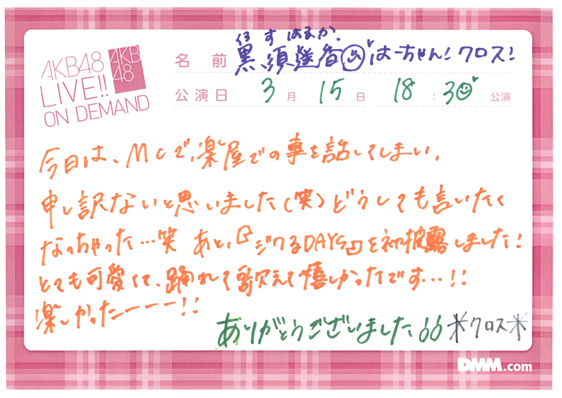 AKB48
LIVE!!
ON DEMAND
AKB
48
くろ すはるか
名 前 黒須遥香 はーちゃん!クロス!
公演日 3月 15日 18:30 公演
今日は、MCで、楽屋での事を話してしまい、
申し訳ないと思いました(笑)どうしても言いたく
なっちゃった…笑 あと、『ジワるDAYS』を初披露しました!
とても可愛くて、踊れて歌えて嬉しかったです…!!
楽しかったーーー!!
ありがとうございました66 *クロス*
DMM.com